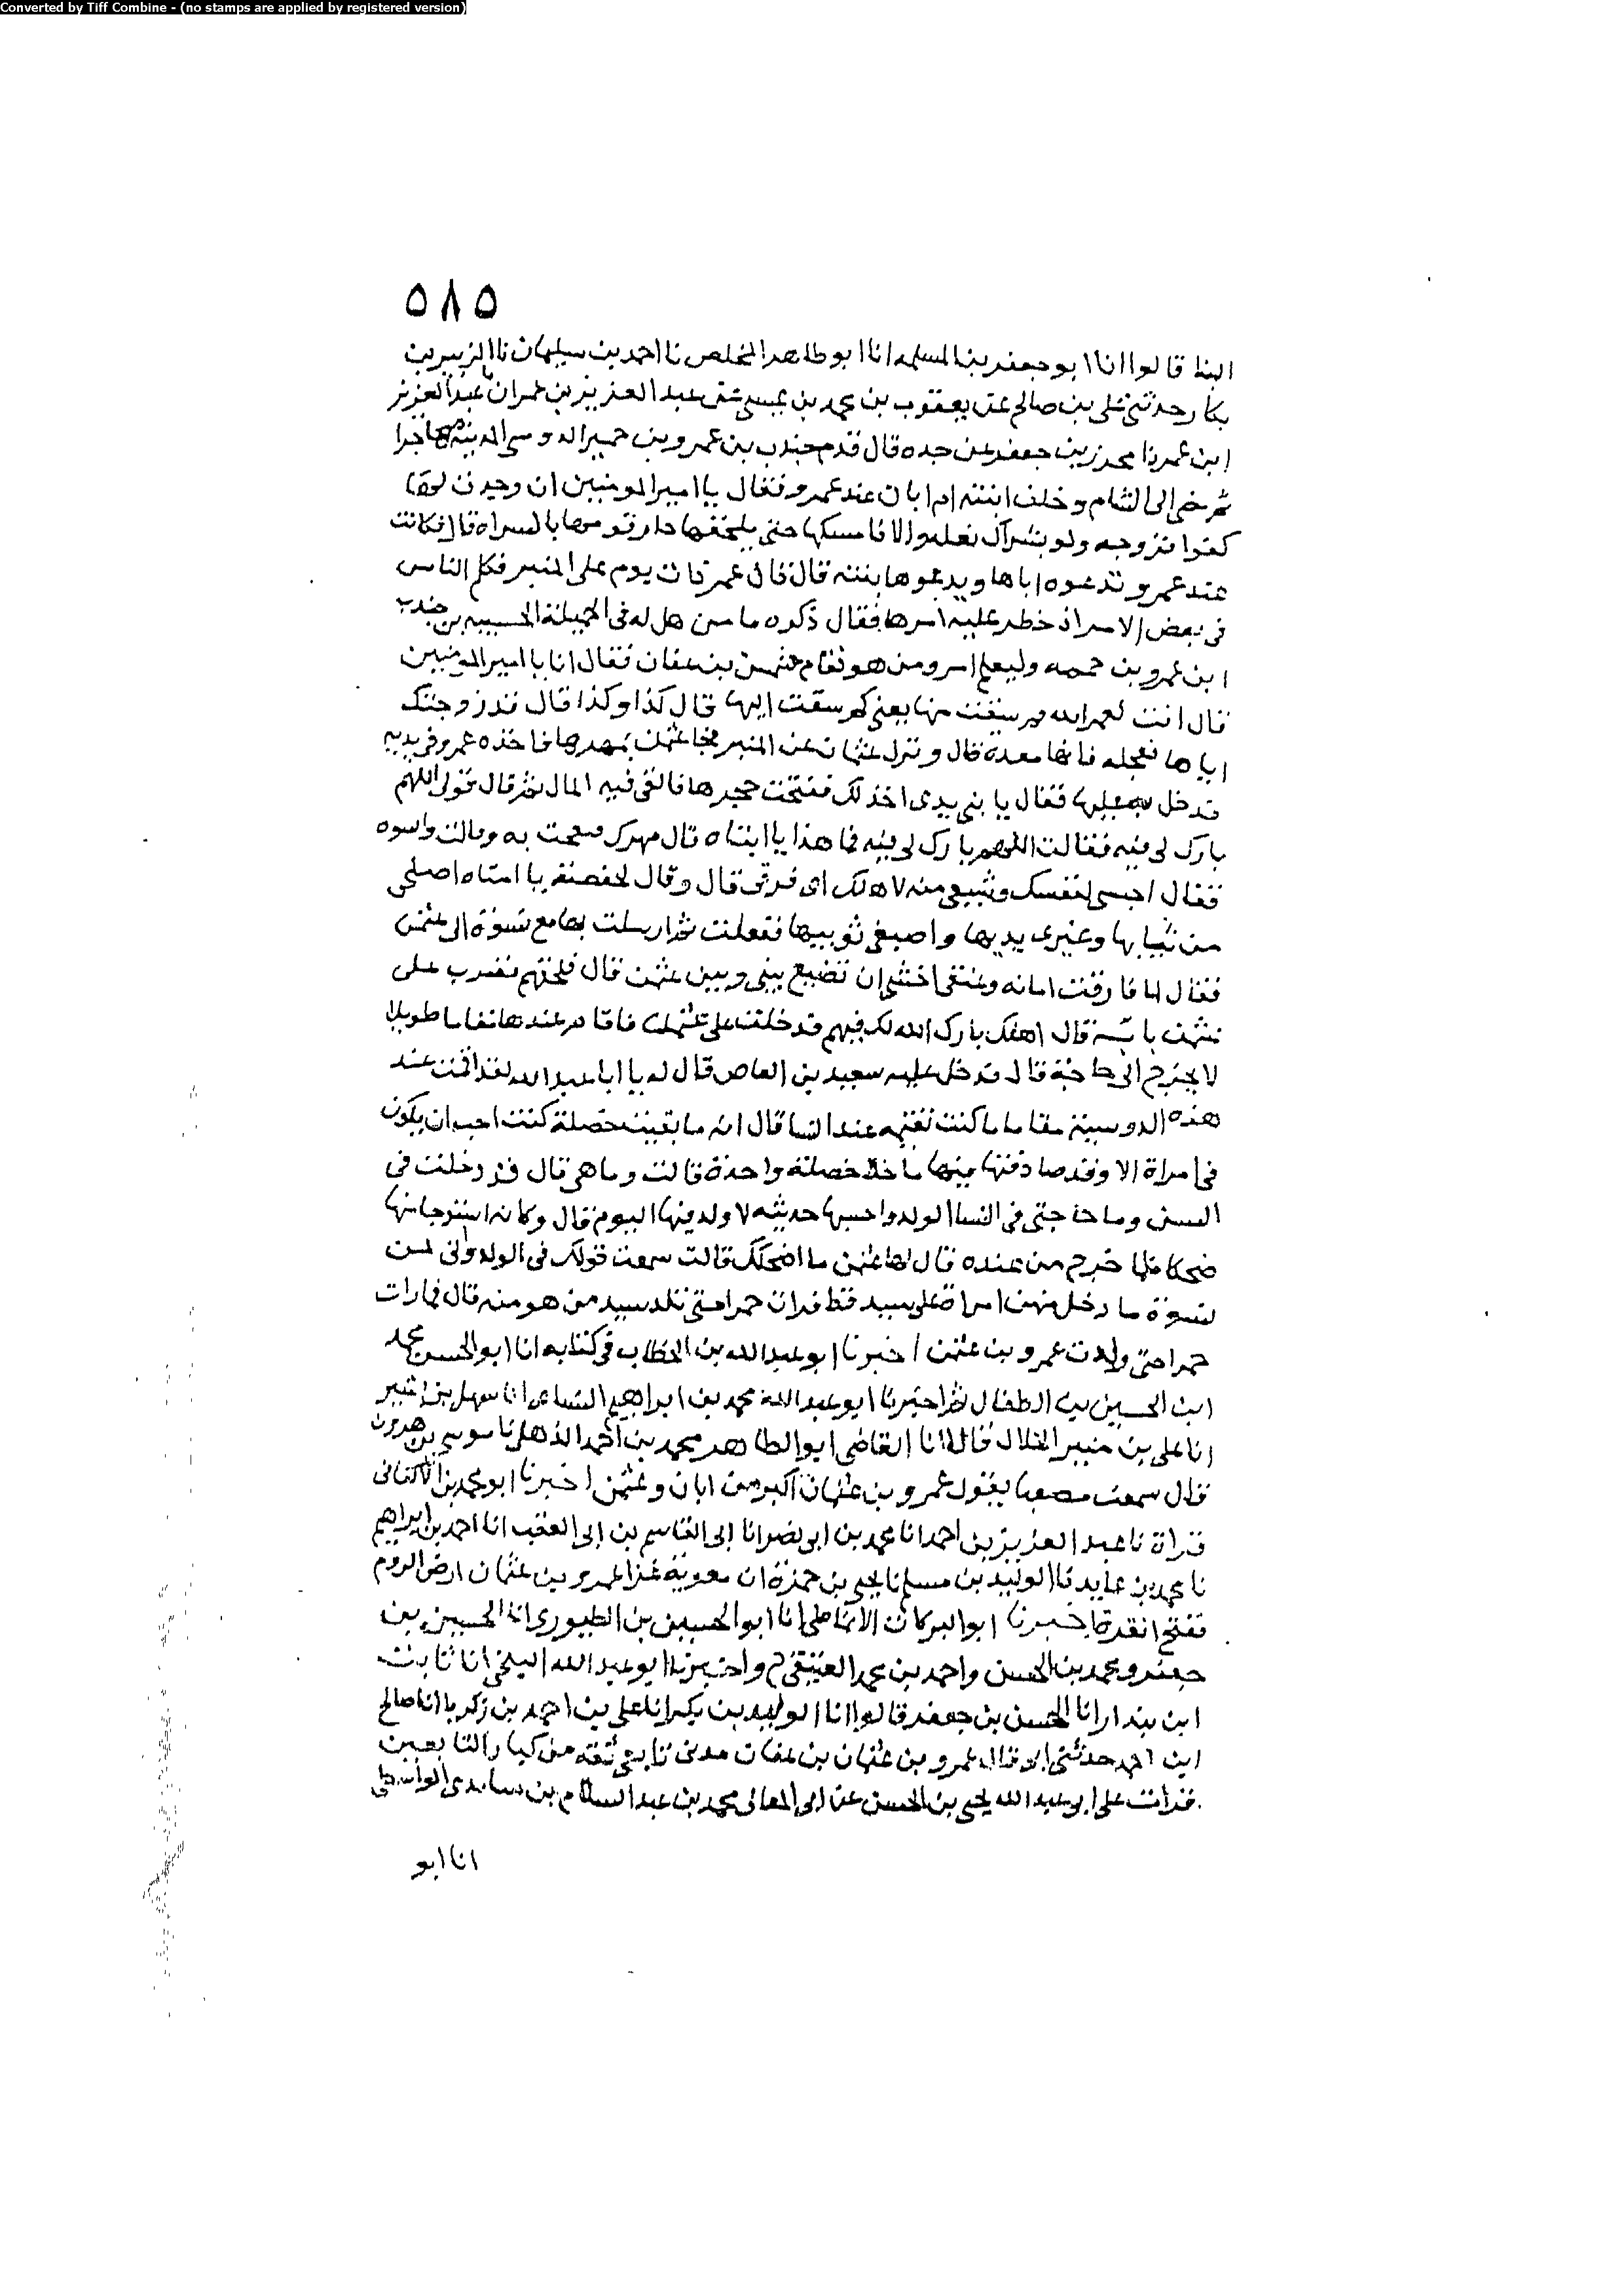 Converted by Tiff Combine - (no stamps are applied by registered version)
٥٨٥
البنا قالوا انا ابو جعفر بن المسلمه انا ابو طاهر المخلص نا احمد بن سليمان نا الزبير بن
بكار حدثني علي بن صالح عن يعقوب بن محمد بن عيسى عن عبد العزيز بن عمران نا عبد العزيز
ابن عمر نا محرز بن جعفر عن جده قال قدم جندب بن عمرو بن حميرا لدوسي المدينة مهاجرا
ثم مضى الى الشام وخلف ابنته ام ابان عند عمر وفقال يا امير المومنين ان وجدت لها
كفوا فزوجه ولو بشراك نعله والا فامسكها حتى يلحقها دار قومها بالسراة قال فكانت
عند عمر وتدعوه اباها ويدعوها بنته قال فان عمر ذات يوم على المنبر فكلم الناس
في بعض الامر اذ خطر عليه امرها فقال ذكره ما من هل له في الجميلة الحسيبه بن جندب
ابن عمرو بن حممه وليعلم امرو من هو فقام عثمن بن عفان فقال انا يا امير المومنين
قال انت لعمر الله كم سقت منها يعني كم سقت اليها قال كذا وكذا قال قد زوجتك
اياها فعجله فانها معدة قال ونزل عثمان عن المنبر فجا عثمن بمهرها فاخذه عمر وفي يديه
فدخل به عليها فقال يا بني بدى اخذلك ففتحت حجرها فالقى فيه المال ثم قال قولي اللهم
بارك لي فيه فقالت اللهم بارك لي فيه فما هذا يا ابتاه قال مهرك فنفحت به وقالت واسوه
فقال احبسي لنفسك وتبيعي منه لاهلك اي فرقي قال وقال لحفصة يا امتاه اصلحي
من ثيابها وغيرى يديها واصبغي ثوبيها ففعلت ثم ارسلت بها مع نسوة الى عثمن
فقال لما فارقت امانه وعنقي اخشى ان تضيع بيني وبين عثمن قال فلحقهم فضرب على
عثمن بابه ثم قال اهلك بارك الله لك فيهم فدخلت على عثمان فاقام عندها مقاما طويلا
لا يخرج الى حاجة قال فدخل عليه سعيد بن العاص قال له يا ابا عبد الله لقد اقمت عند
هذه الدوسية مقاما ما كنت تقيمه عند النسا قال انه ما بقيت خصلة كنت احب ان يكون
في امراة الا وقد صادفتها فيها ما خلا خصلة واحدة قالت وما هي قال قد دخلت في
السن وما حاجتي في النسا الولد واحسبها حديثه لا ولد فيها اليوم قال وكانه استرجا منها
ضحكا فلما خرج من عنده قال لها عثمن ما اضحكك قالت سمعت قولك في الولد واني لمن
نسوة ما دخل منهن امراة على سيد قط فرات حمرا حتى تلد سيد من هو منه قال فما رات
حمرا حتى ولدت عمرو بن عثمن اخبرنا ابو عبد الله بن الخطاب في كتابه انا ابو الحسن محمد
ابن الحسين بن الطفال ثم اخبرنا ابو عبد الله محمد بن ابراهيم النسائي انا سهل بن بشير
انا علي بن منير الخلال قالا انا القاضي ابو الطاهر محمد بن احمد الذهلي نا موسى بن هرون
قال سمعت مصعبا يقول عمرو بن عثمان اكبر من ابان وعثمن اخبرنا ابو محمد بن الاكفاني
قراة نا عبد العزيز بن احمد انا محمد بن ابي نصر انا ابي القاسم بن ابي العقب انا احمد بن ابراهيم
نا محمد بن عايد نا الوليد بن مسلم نا يحيى بن حمزة ان معوية غزا لعمرو بن عثمان ارض الروم
ففتح انقدة اخبرنا ابو البركات الانماطي انا ابو الحسين بن الطيوري انا الحسين بن
جعفر ومحمد بن الحسن واحمد بن محمد العتيقي ح واخبرنا ابو عبد الله البلخي انا ثابت
ابن بندار انا الحسن بن جعفر قالوا انا الوليد بن بكر انا علي بن احمد بن زكريا انا صالح
ابن احمد حدثني ابي قال عمرو بن عثمان بن عفان مدني تابعي ثقه من كبار التابعين
قرات على ابو عبد الله يحيى بن الحسن عن ابي المعالي محمد بن عبد السلام بن ساندى الواسطي
انا ابو